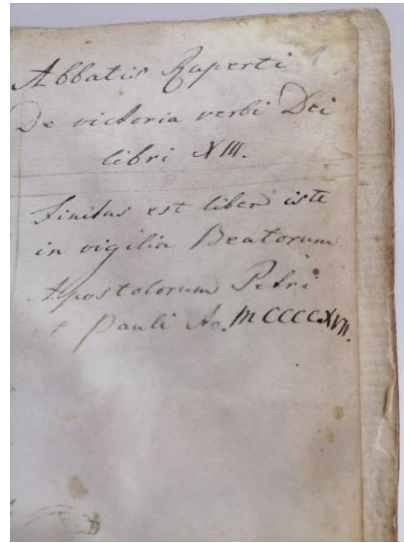 Abbatis Ruperti
De victoria verbi Dei
libri XIII.
Finitus est liber iste
in vigilia Beatorum
Apostolorum Petri
e Pauli Ao. MCCCCXVII.